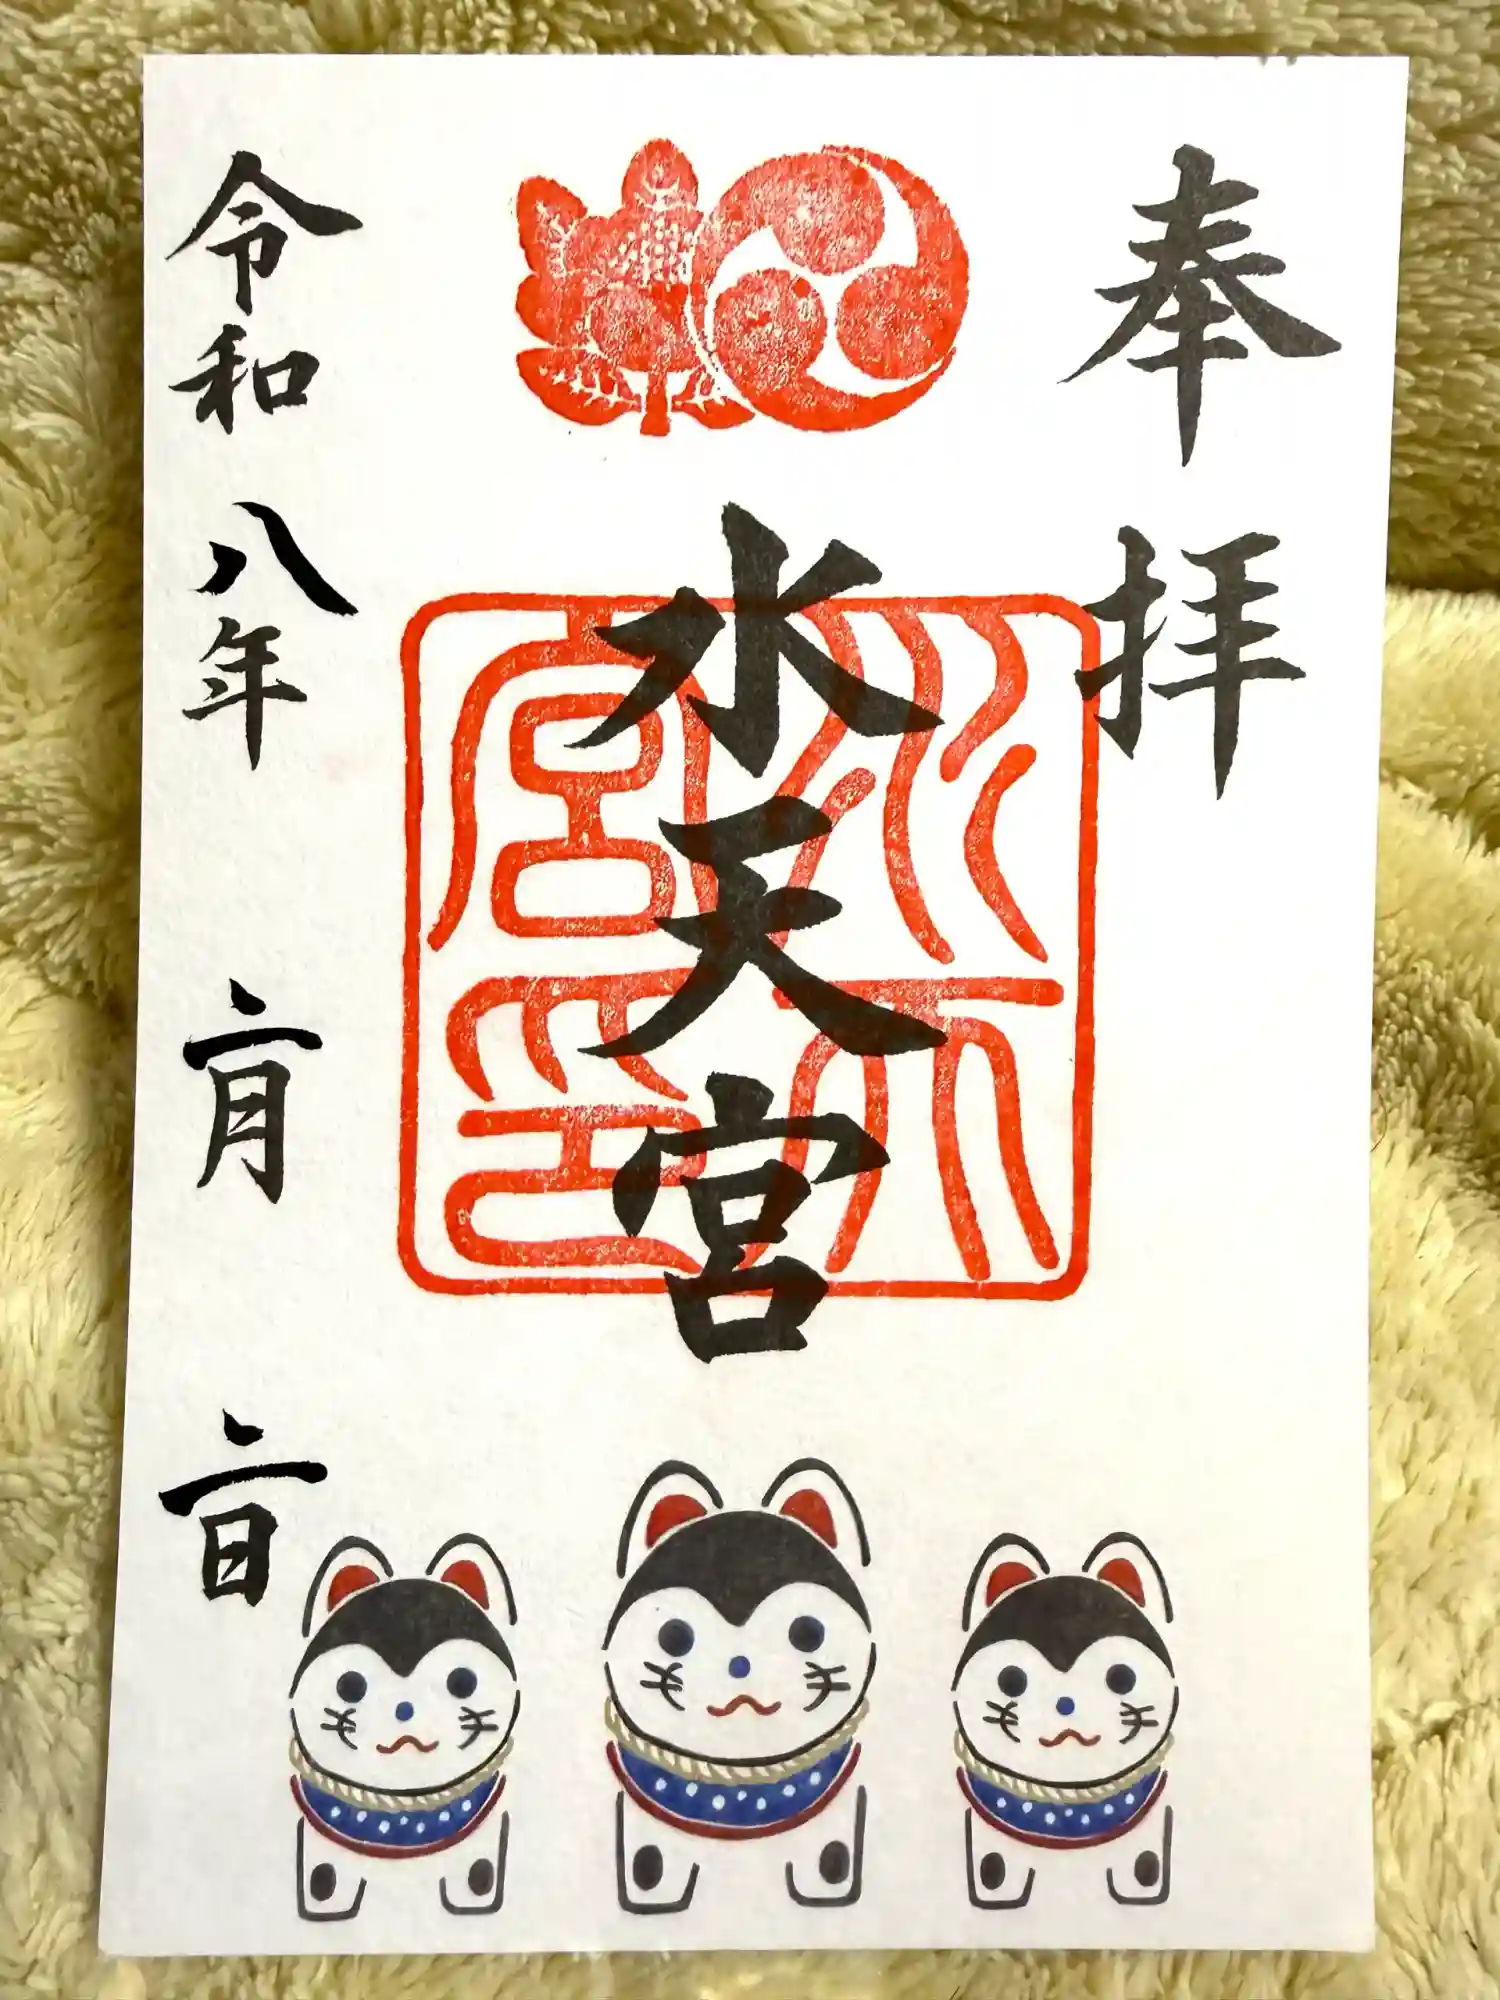 奉拝
水天宮
水天宮印
令和八年二月二日